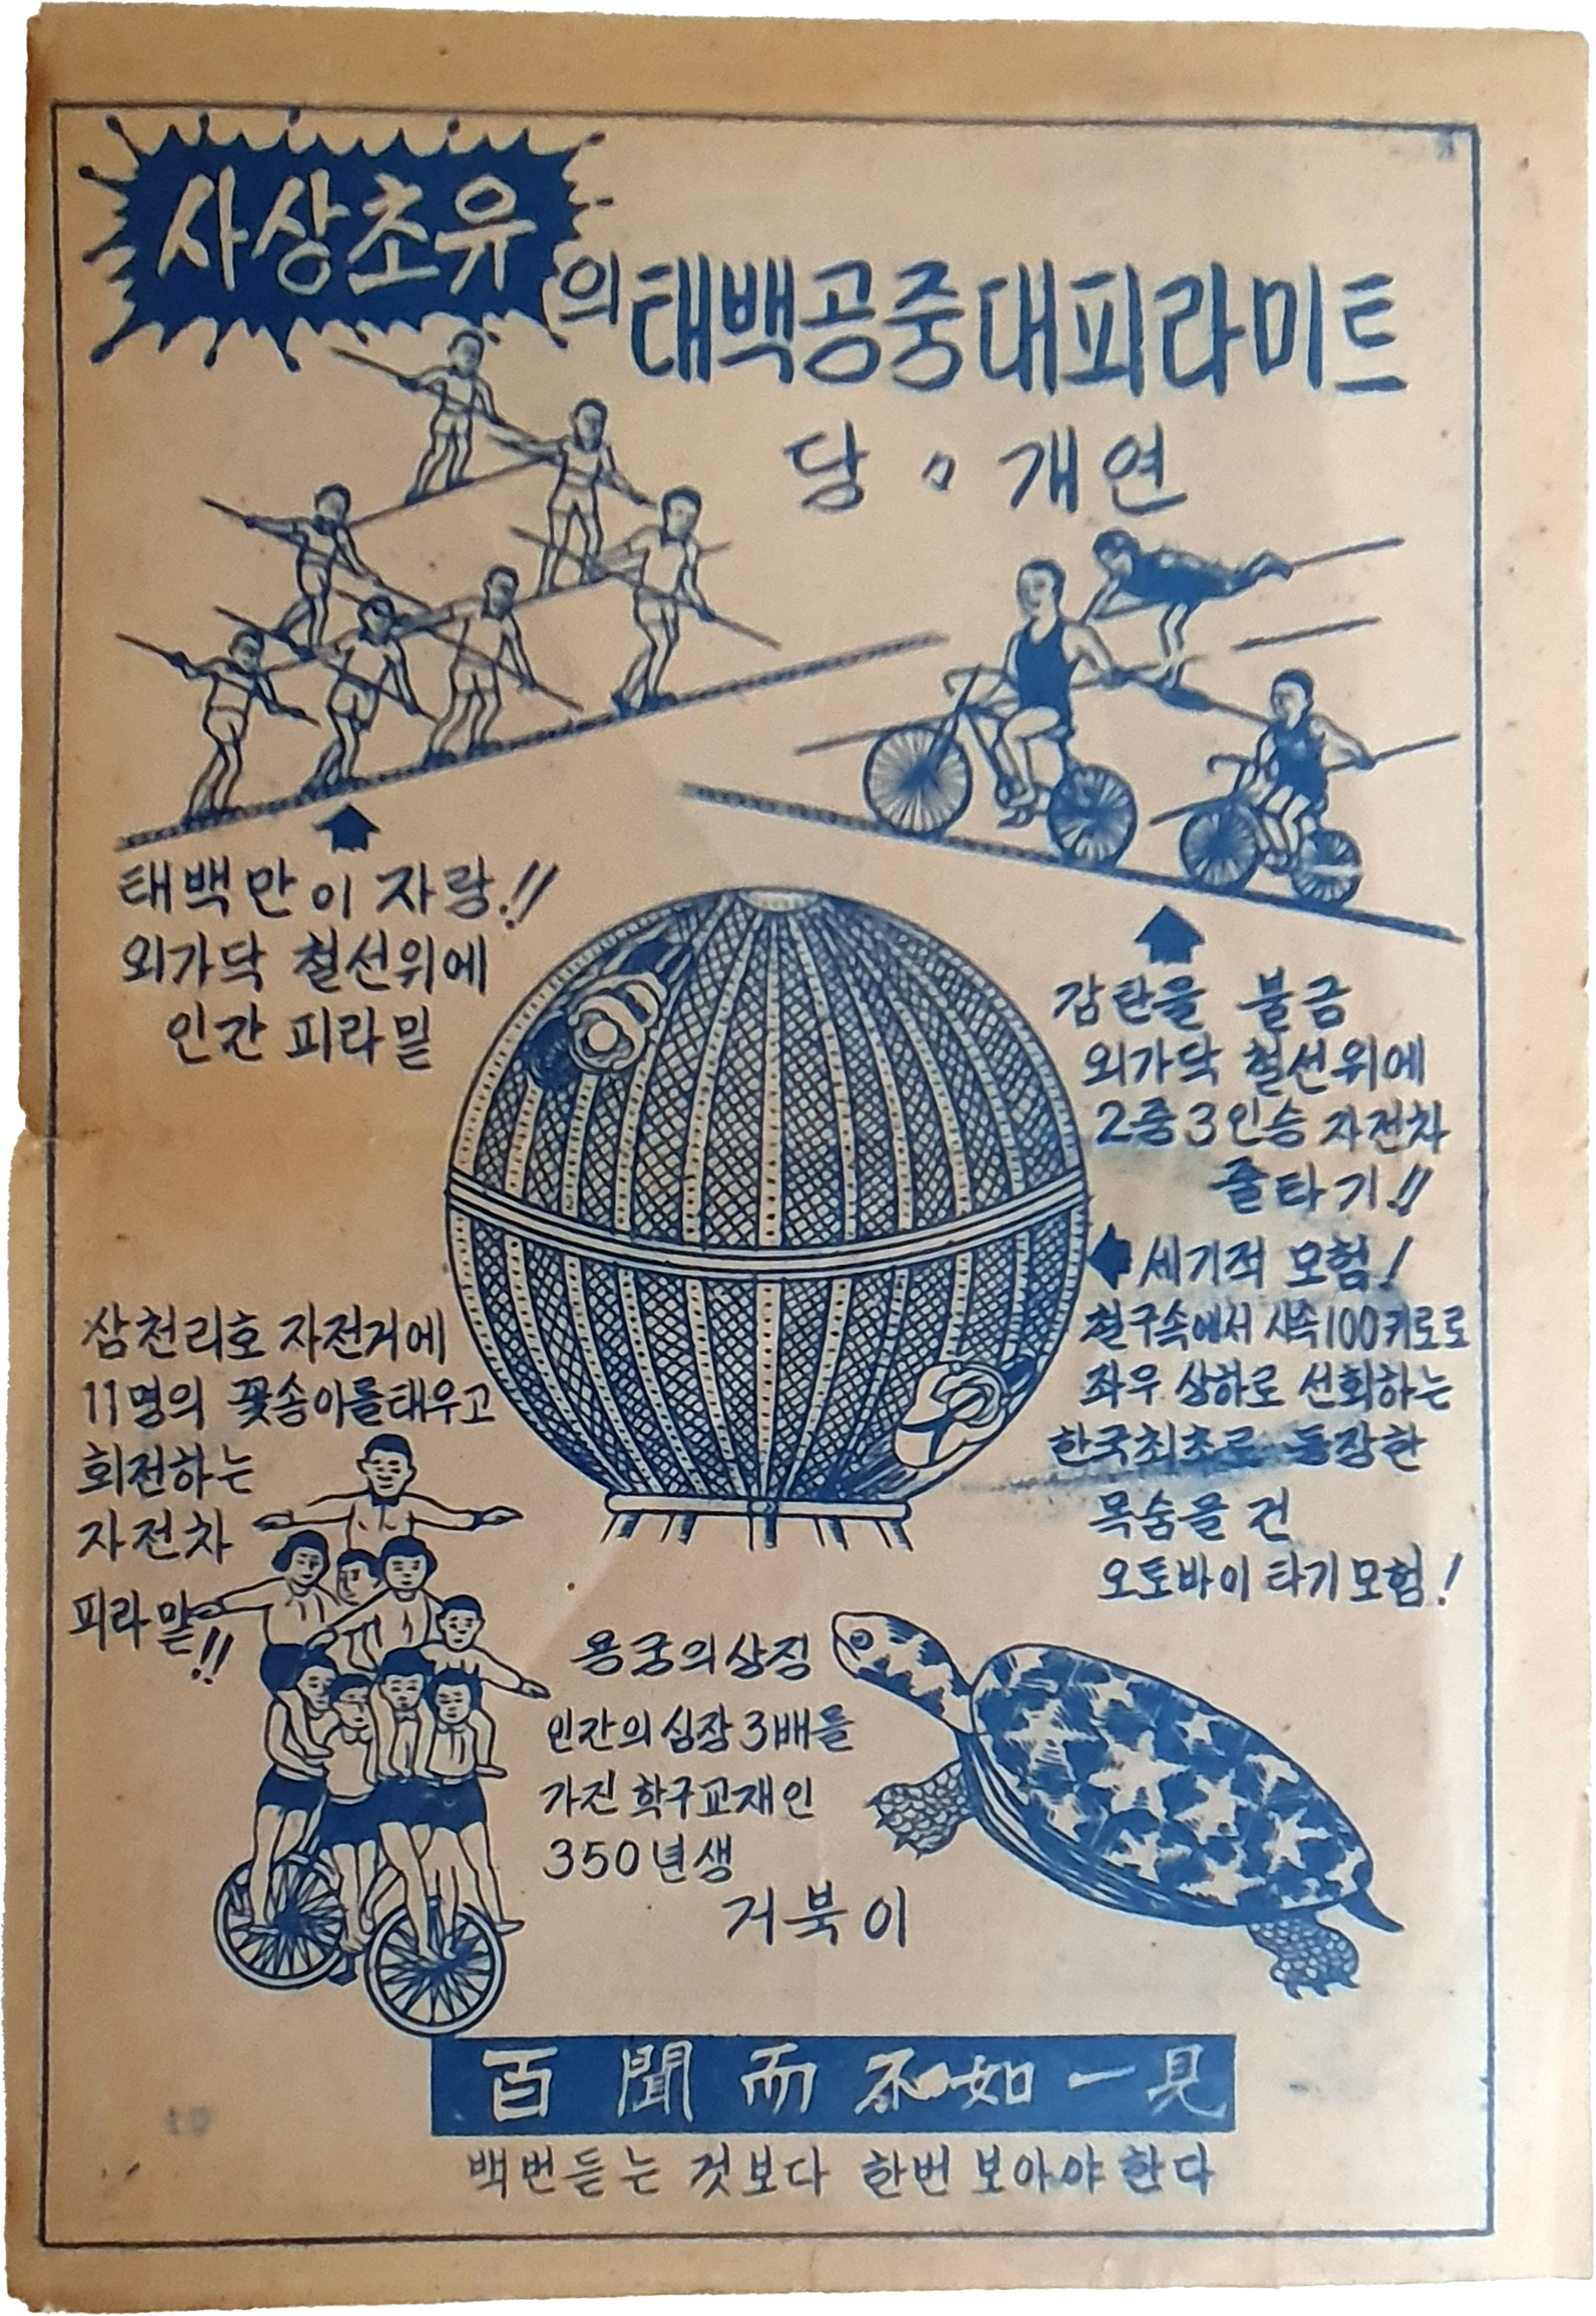 사상초유
의 태백공중대피라미트
당 개연
태백만이 자랑!!
외가닥 철선위에
인간 피라밑
감탄을 불금
외가닥 철선위에
2중3인승 자전차
줄타기!!
세기적 모험!
철구속에서 시속100키로로
좌우 상하로 선회하는
한국최초로 등장한
목숨을 건
오토바이 타기모험!
삼천리호 자전거에
11명의 꽃송이를태우고
회전하는
자전차
피라밑!!
용궁의상징
인간의심장3배를
가진 학구교재인
350년생
거북이
百聞而不如一見
백번듣는 것보다 한번 보아야 한다